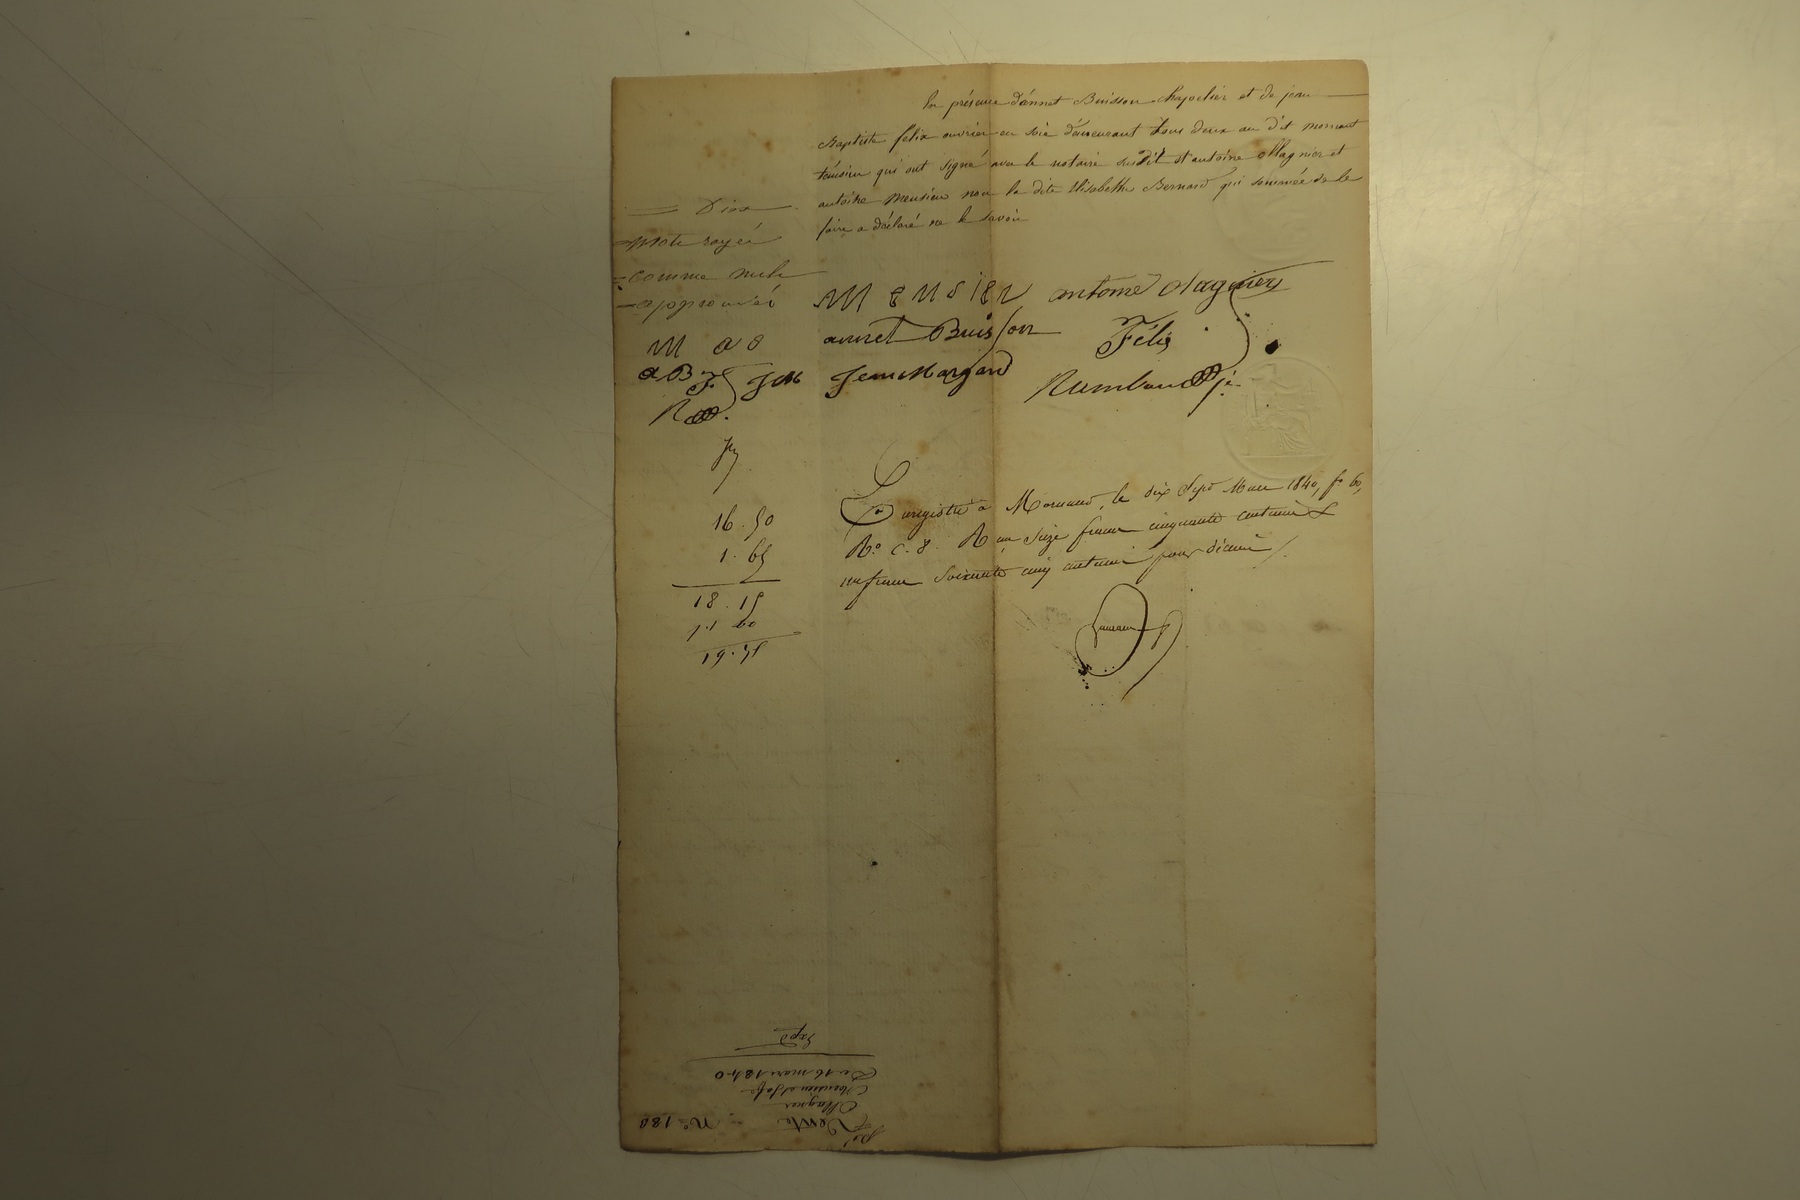 En présence d'annet Buisson chapelier et de jean
Baptiste felix ouvrier en soie demeurant tous deux au dit mornant
témoins qui ont signé avec le notaire susdit et antoine Magnier et
antoine Mensieu non la dite Elisabeth Bernard qui sommée de le
faire a déclaré ne le savoir
Dix
mots rayés
comme nuls
approuvés
Mensier antoine Magnien
annet Buisson Félix
Jean Margard
M a o
a B F J M
16. 50
1. 65
18. 15
1. 60
19. 75
Enregistré à Mornand, le dix Sept Mars 1840, fo 60,
Ro C. 8. Reçu seize francs cinquante centimes &
un franc soixante cinq centimes pour décime
No 180
Vente
Magnier
Mensieu et Sa fe
Du 16 mars 1840
Expd